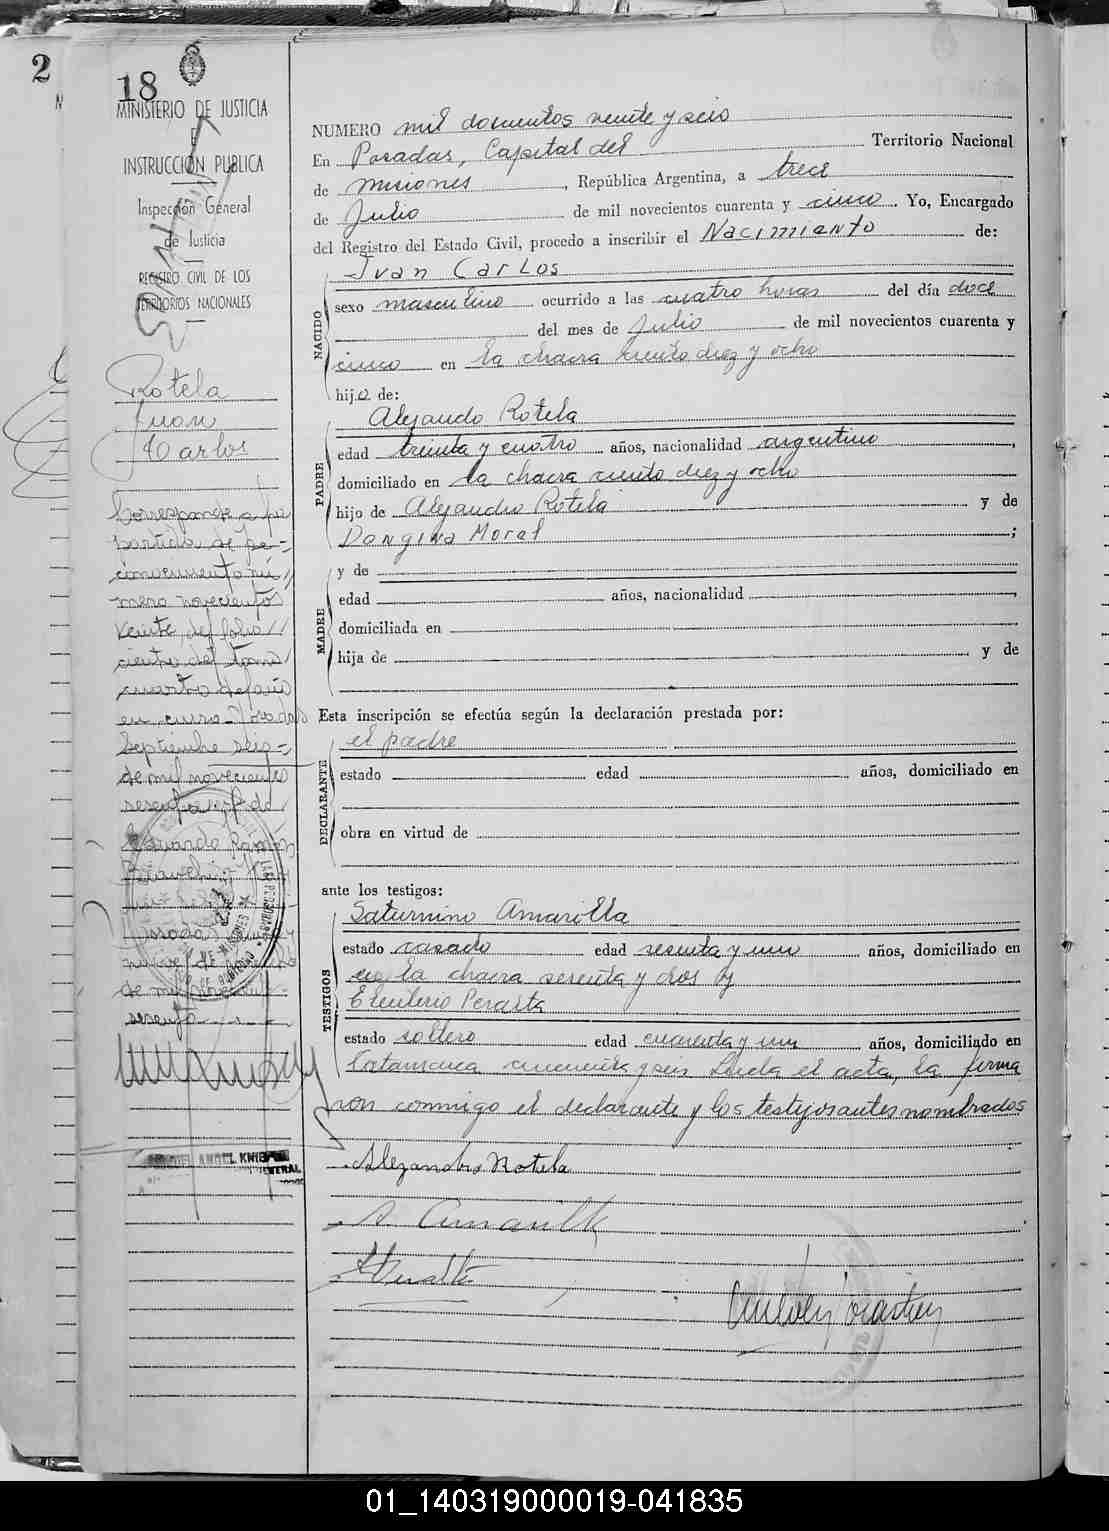 2
18
MINISTERIO DE JUSTICIA
E
INSTRUCCIÓN PUBLICA
Inspección General
de Justicia
REGISTRO CIVIL DE LOS
TERRITORIOS NACIONALES
Rotela
Juan
Carlos
Corresponde a la
partida de re-
conocimiento nú
mero novecientos
veinte, del folio
del tomo
cuarto del año
en curso. Posadas
Septiembre
de mil novecientos
sesenta
Eduardo Ramón
Posadas
nueve de
de mil novecientos
sesenta
ANGEL
NUMERO mil doscientos veinte y seis
En Posadas, Capital del Territorio Nacional
de Misiones, República Argentina, a trece
de Julio de mil novecientos cuarenta y cinco. Yo, Encargado
del Registro del Estado Civil, procedo a inscribir el Nacimiento de:
Juan Carlos
NACIDO
sexo masculino ocurrido a las cuatro horas del día doce
del mes de Julio de mil novecientos cuarenta y
cinco en la chacra ciento diez y ocho
hijo de:
Alejandro Rotela
PADRE
edad treinta y cuatro años, nacionalidad argentino,
domiciliado en la chacra ciento diez y ocho
hijo de Alejandro Rotela y de
Dongina Morel;
MADRE
y de
edad años, nacionalidad,
domiciliada en
hija de y de
Esta inscripción se efectúa según la declaración prestada por:
el padre
DECLARANTE
estado edad años, domiciliado en
obra en virtud de
ante los testigos:
Saturnino Amarilla
TESTIGOS
estado casado edad sesenta y uno años, domiciliado en
en la chacra sesenta y dos y
Eleuterio Peralta
estado soltero edad cuarenta y un años, domiciliado en
Catamarca cincuenta y seis Leida el acta, la firma
ron conmigo el declarante y los testigos antes nombrados
Alejandro Rotela
A. Amarilla
E Peralta
01_140319000019-041835